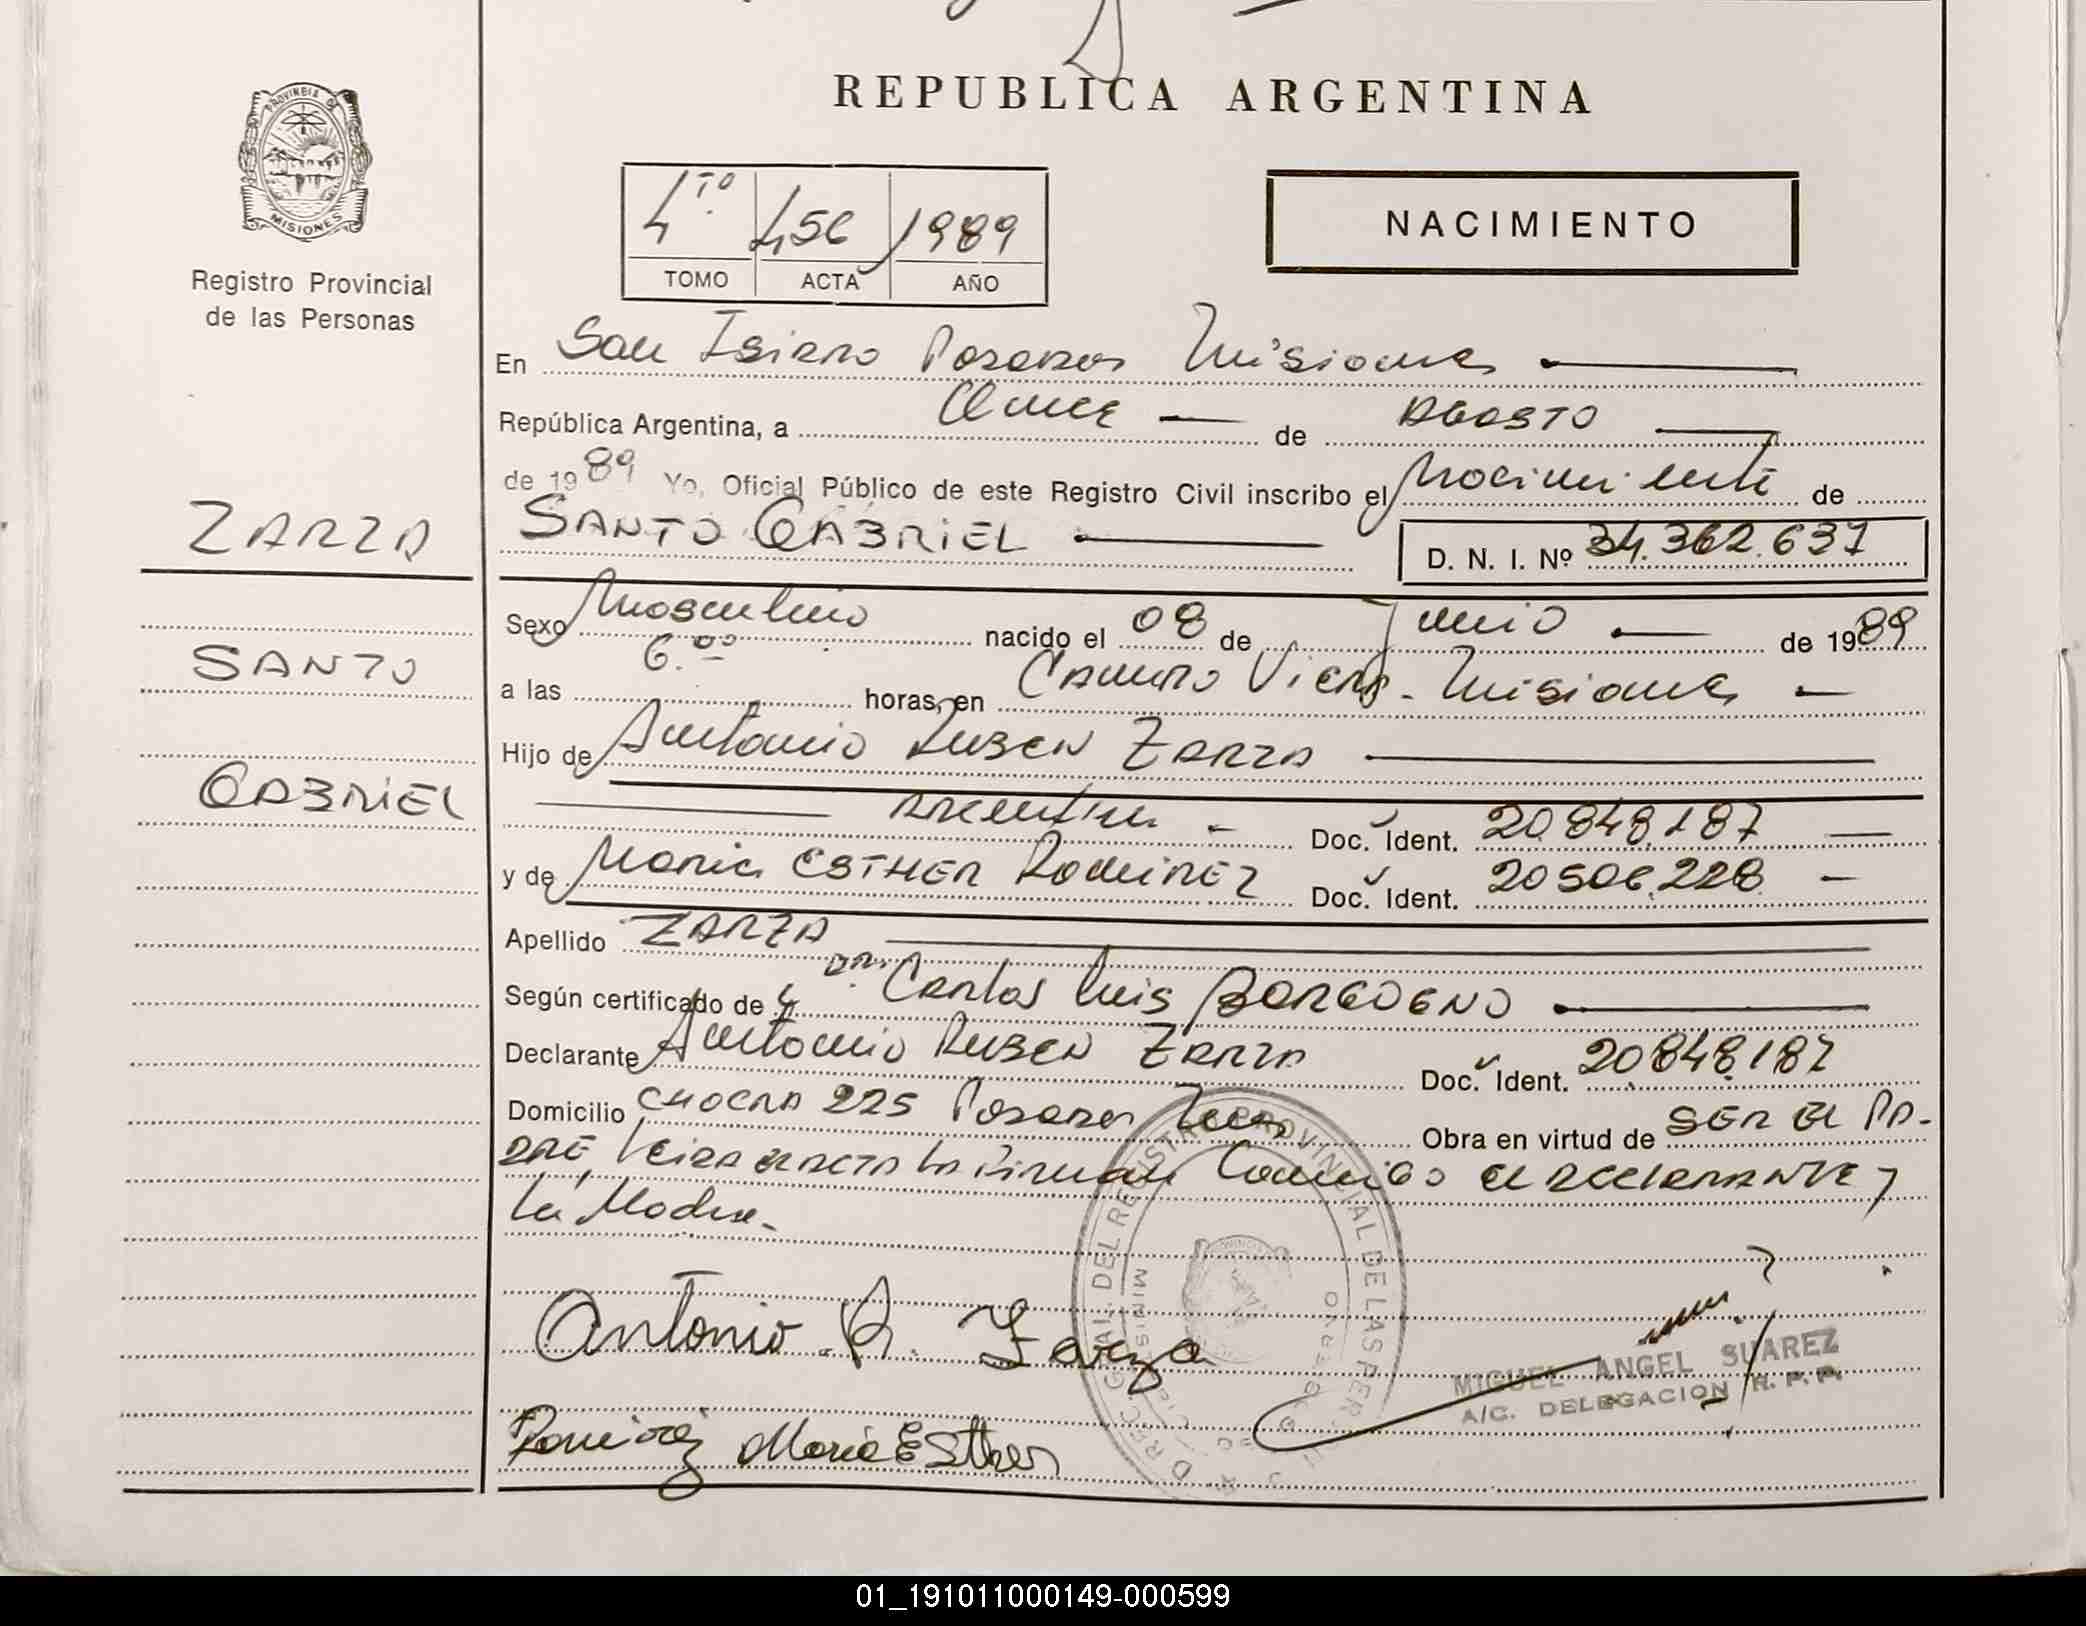 REPUBLICA ARGENTINA
PROVINCIA DE
MISIONES
Registro Provincial
de las Personas
4TO 456 1989
TOMO ACTA AÑO
NACIMIENTO
En San Isidro Posadas Misiones
República Argentina, a Once de AGOSTO
de 1989 Yo, Oficial Público de este Registro Civil inscribo el Nacimiento de
ZARZA
SANTO GABRIEL
D. N. I. Nº 34.362.637
Sexo Masculino nacido el 08 de Junio de 1989
SANTO
a las 6.00 horas, en Campo Viera - Misiones
Hijo de Antonio RUBEN ZARZA
GABRIEL
Argentina Doc. Ident. 20.848.187
y de Maria ESTHER RAMIREZ Doc. Ident. 20506.228
Apellido ZARZA
Según certificado de DR. Carlos Luis BORGOGNO
Declarante Antonio RUBEN ZARZA Doc. Ident. 20.848.187
Domicilio CHACRA 225 Posadas Mnes Obra en virtud de SER EL PA-
DRE, Leida el acta la firman Conmigo el declarante y
la Madre-
Antonio R. Zarza
MIGUEL ANGEL SUAREZ
A/C. DELEGACION R. P. P.
Ramirez Maria Esther
DIREC. GRAL. DEL REGISTRO PROVINCIAL DE LAS PERSONAS
01_191011000149-000599